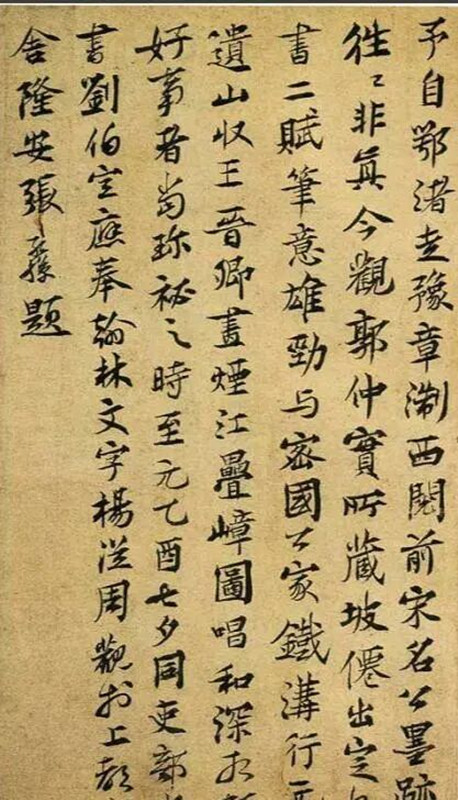 予自鄂渚走豫章淛西閱前宋名公墨跡
徃〻非真今觀郭仲實所藏坡僊出定
書二賦筆意雄勁与密國公家鐵溝行
遺山收王晉卿畫煙江疊嶂圖唱和深相
好事者尚珍祕之時至元乙酉七夕同吏部
書劉伯宣應奉翰林文字楊從周觀於上都
舍隆安張題